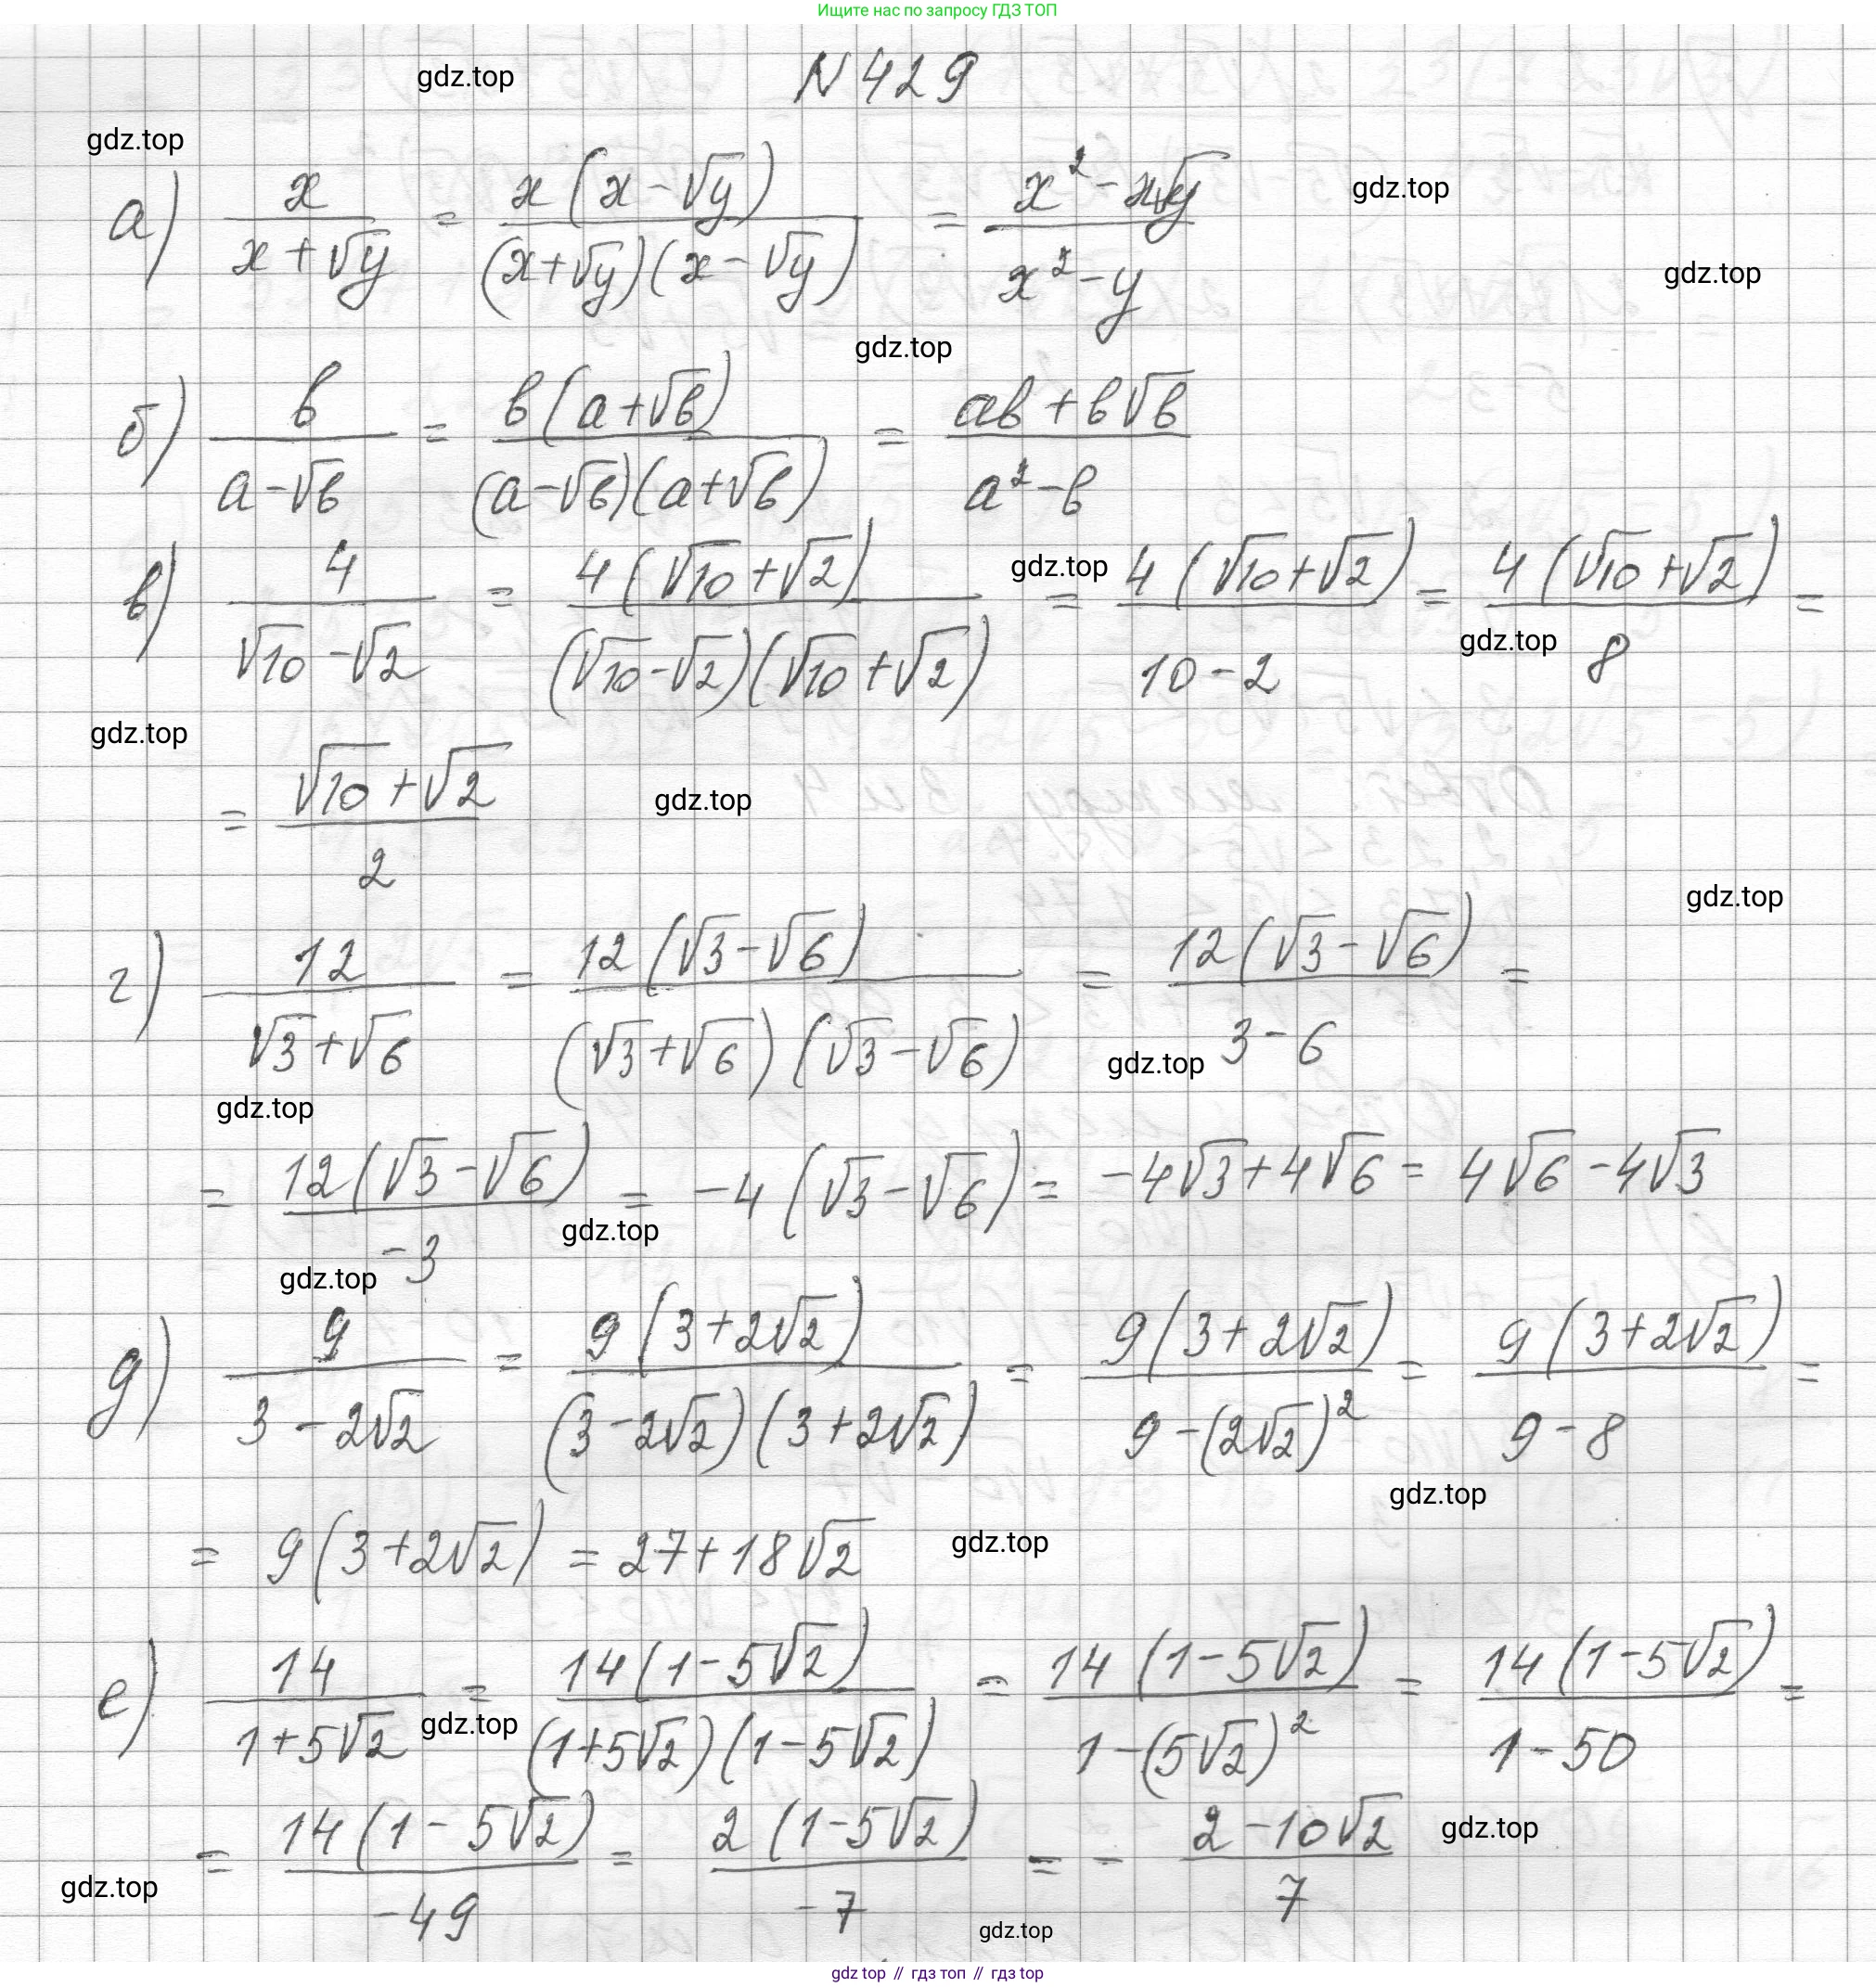 Ищите нас по запросу ГДЗ ТОП
gdz.top
N 429
gdz.top
а) x/(x+√y) = x(x-√y)/((x+√y)(x-√y)) = (x²-x√y)/(x²-y)
gdz.top
gdz.top
gdz.top
б) в/(a-√в) = в(a+√в)/((a-√в)(a+√в)) = (aв+в√в)/(a²-в)
в) 4/(√10-√2) = 4(√10+√2)/((√10-√2)(√10+√2)) = 4(√10+√2)/(10-2) = 4(√10+√2)/8 =
gdz.top
gdz.top
gdz.top
= (√10+√2)/2
gdz.top
gdz.top
г) 12/(√3+√6) = 12(√3-√6)/((√3+√6)(√3-√6)) = 12(√3-√6)/(3-6) =
gdz.top
gdz.top
= 12(√3-√6)/(-3) = -4(√3-√6) = -4√3+4√6 = 4√6-4√3
gdz.top
gdz.top
д) 9/(3-2√2) = 9(3+2√2)/((3-2√2)(3+2√2)) = 9(3+2√2)/(9-(2√2)²) = 9(3+2√2)/(9-8) =
gdz.top
= 9(3+2√2) = 27+18√2
gdz.top
е) 14/(1+5√2) = 14(1-5√2)/((1+5√2)(1-5√2)) = 14(1-5√2)/(1-(5√2)²) = 14(1-5√2)/(1-50) =
gdz.top
= 14(1-5√2)/(-49) = 2(1-5√2)/(-7) = - (2-10√2)/7
gdz.top
gdz.top
gdz.top
gdz top // гдз топ // gdz top